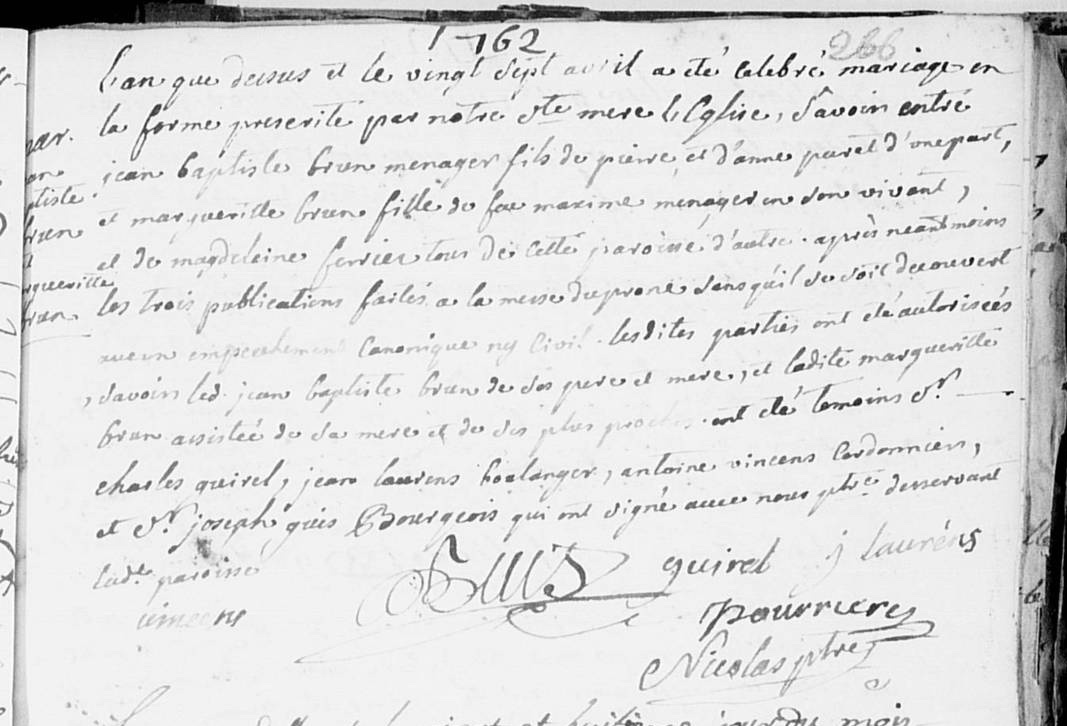 1762
266
L'an que dessus et le vingt sept avril a eté celebré mariage en
la forme prescrite par notre Ste mere l'Eglise, Savoir entre
jean baptiste brun menager fils de pierre et d'anne puret d'une part,
et margueritte brun fille de feu maxime menager en son vivant,
et de magdeleine ferrier tous de cette paroisse d'autre. après neantmoins
les trois publications faites a la messe du prone sans qu'il se soit decouvert
aucun empechement canonique ny civil. lesdites parties ont eté autorisées
, savoir led. jean baptiste brun de ses pere et mere, et ladite margueritte
brun assistée de sa mere et de ses plus proches. ont eté temoins Sr.
charles quirel, jean laurens boulanger, antoine vincens Cordonnier,
et Sr. joseph guis Bourgeois qui ont signé avec nous ptre. desservant
lade. paroisse
mar.
jean
baptiste
brun
et
margueritte
brun
guis
quirel
j laurens
vincens
pourriere
Nicolas ptre